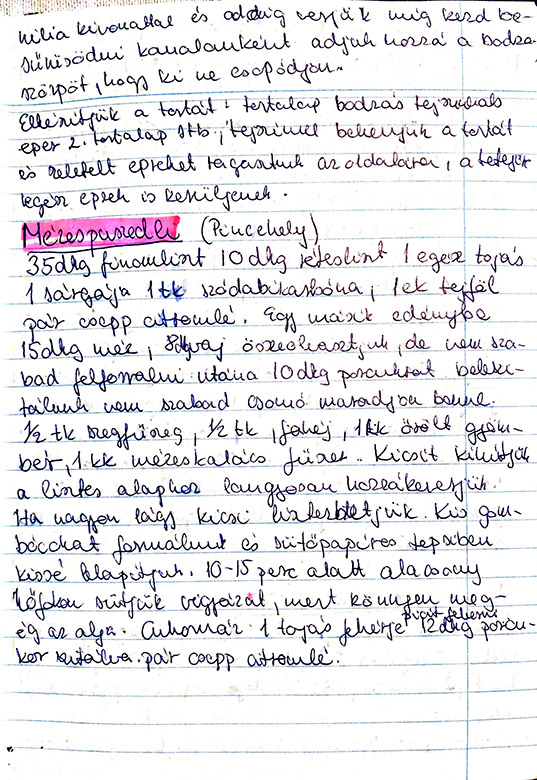 nilia kivonattal és addig verjük míg kezd be-
sűrűsödni kanalanként adjuk hozzá a bodza
szörpöt, hogy ki ne csapódjon.
Elkészítjük a tortát: tortalap bodzás tejszínhab
eper 2. tortalap stb, tejszínnel bekenjük a tortát
és szeletelt epreket ragasztunk az oldalára, a tetejére
egész eprek is kerüljenek.
Mézespuszedli (Pincehely)
35dkg finomliszt 10dkg rétesliszt 1 egész tojás
1 sárgája 1tk szódabikarbóna, 1ek tejföl
pár csepp citromlé. Egy másik edénybe
15dkg méz, 8dkg vaj összeolvasztjuk, de nem sza-
bad felforralni utána 10dkg porcukrot beleszi-
tálunk nem szabad csomó maradjon benne.
1/2 tk szegfűszeg, 1/2 tk, fahéj, 1kk őrölt gyöm-
bér, 1 kk mézeskalács fűszer. Kicsit kihűtjük
a lisztes alaphoz langyosan hozzákeverjük.
Ha nagyon lágy kicsi lisztet Kis gom-
bócokat formálunk és sütőpapíros tepsiben
kissé lelapítjuk. 10-15 perc alatt alacsony
hőfokon sütjük vigyázat, mert könnyen meg-
ég az alja. Cukormáz 1 tojás fehérje picit felverni 12dkg porcu-
kor szitálva pár csepp citromlé.